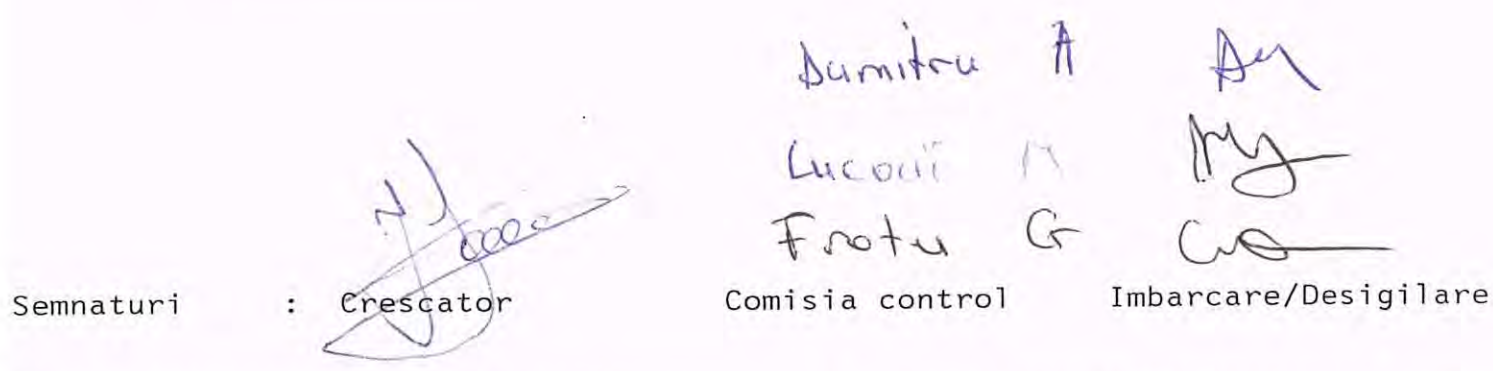 Dumitru A
Lucacii M
Fratu G
Semnaturi : Crescator Comisia control Imbarcare/Desigilare